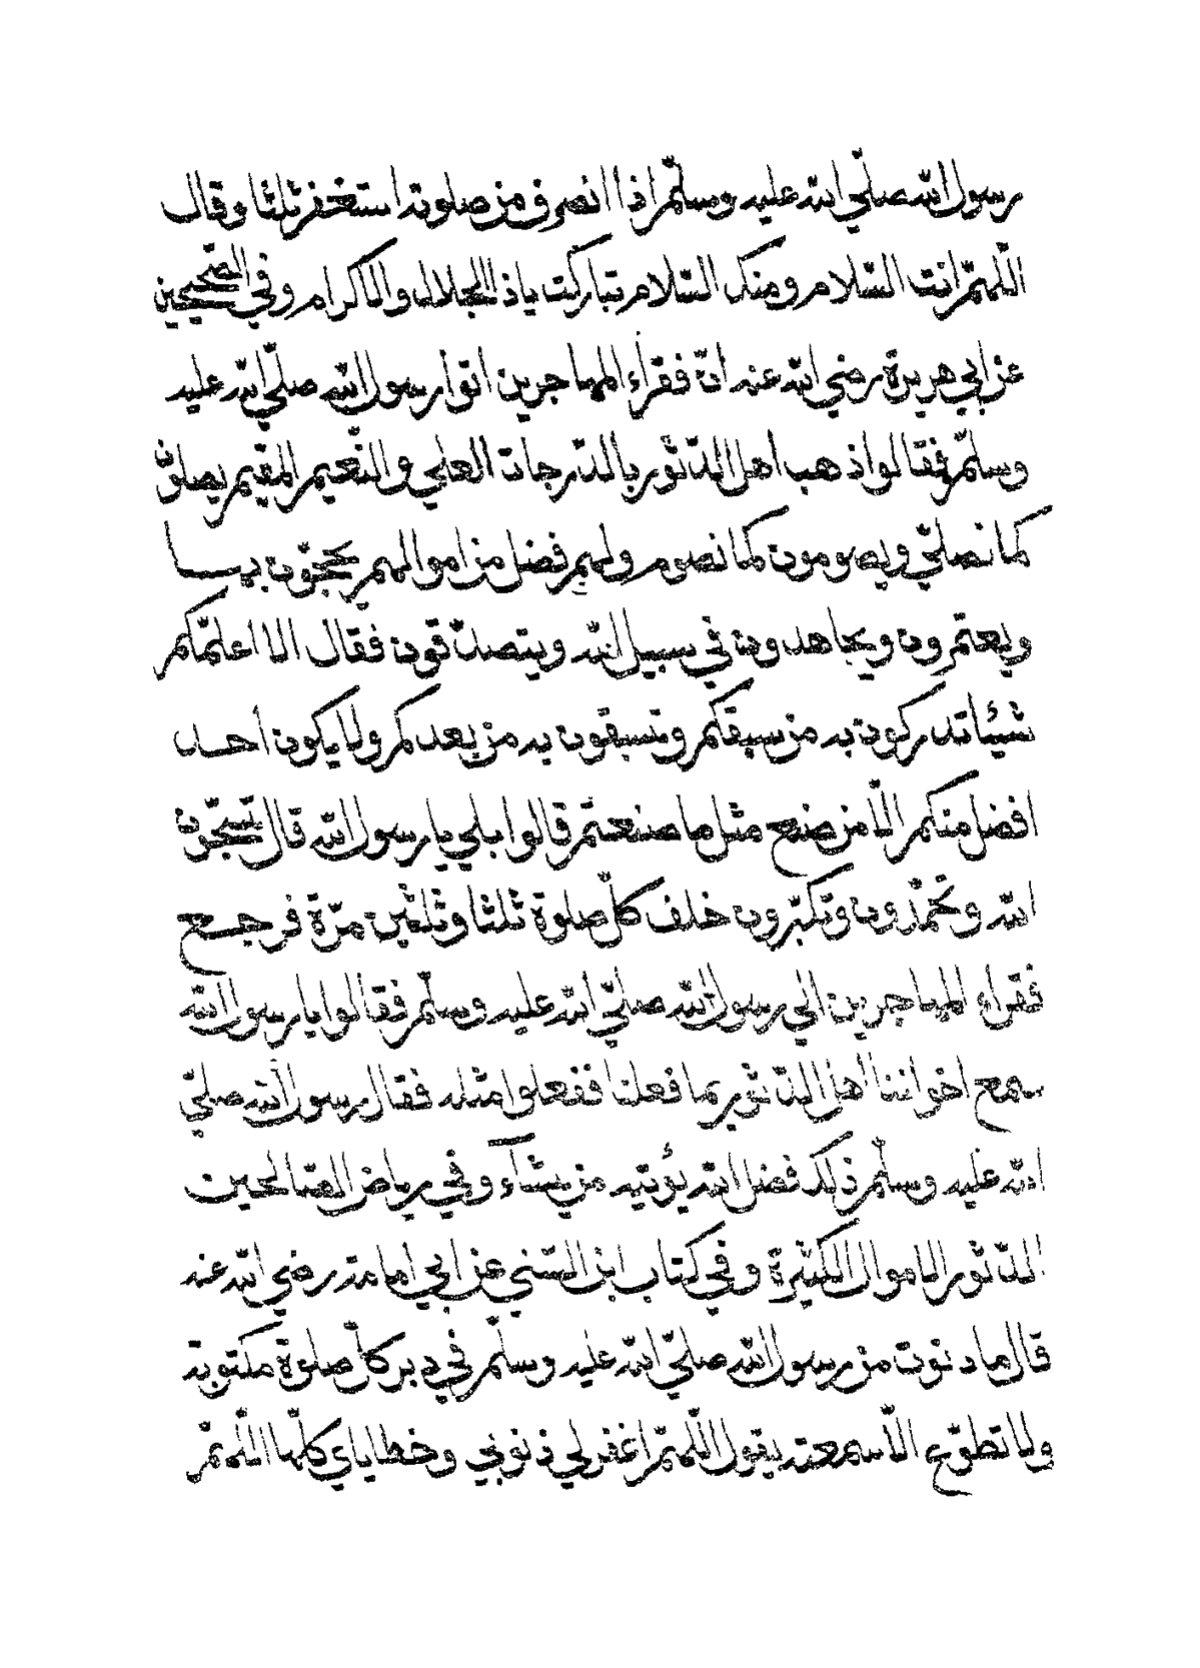 رسول الله صلّي الله عليه وسلّم اذا انصرف من صلوته استغفر ثلثا وقال
اللّهمّ انت السّلام ومنك السّلام تباركت ياذالجلال والاكرام وفي الصّحيحين
عن ابي هريرة رضي الله عنه انّ فقراء المهاجرين اتوا رسول الله صلّي الله عليه
وسلّم فقالوا ذهب اهل الدّثور بالدّرجات العلي والنّعيم المقيم يصلّون
كما نصلّي ويصومون كما نصوم ولهم فضل من اموالهم يحجّون بهــا
ويعتمرون ويجاهدون في سبيل الله ويتصدّقون فقال الا اعلّمكم
شيئا تدركون به من سبقكم وتسبقون به من بعدكم ولا يكون أحــد
افضل منكم الّا من صنع مثل ما صنعتم قالوا بلي يا رسول الله قال تسبّحون
الله وتحمّدون وتكبّرون خلف كلّ صلوة ثلثا وثلثين مرّة فرجــع
فقراء المهاجرين الي رسول الله صلّي الله عليه وسلّم فقالوا يا رسول الله
سمع اخواننا اهل الدّثور بما فعلنا ففعلوا مثله فقال رسول الله صلّي
الله عليه وسلّم ذلك فضل الله يؤتيه من يشآء وفي رياض الصّالحين
الدّثور الاموال الكثيرة وفي كتاب ابن السّني عن ابي امامة رضي الله عنه
قال ما دنوت من رسول الله صلّي الله عليه وسلّم في دبر كلّ صلوة مكتوبة
ولا تطوّع الّا سمعته يقول اللّهمّ اغفر لي ذنوبي وخطاياي كلّها اللّهمّ